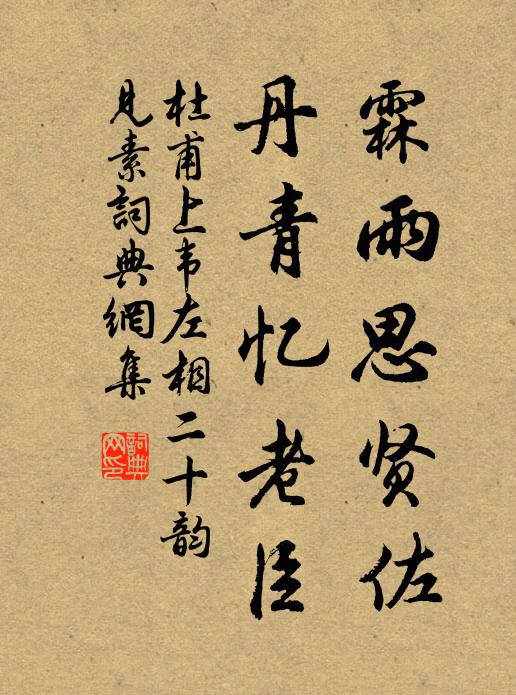 霖雨思贤佐
丹青忆老臣
杜甫上韦左相二十韵
见素词典網集
詞典网印